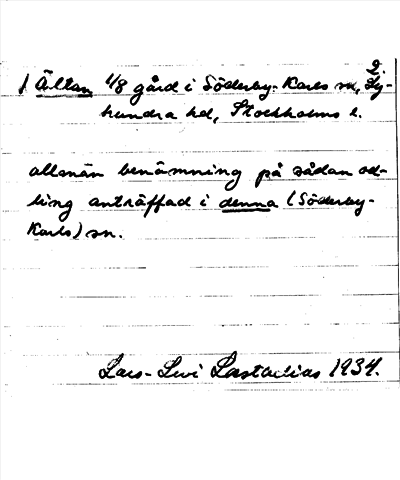 2
1 Ältan 1/8 gård i Söderby-Karls sn, Ly-
hundra hd, Stockholms l.
allmän benämning på sådan od-
ling anträffad i denna (Söderby-
Karls) sn.
Lars-Levi Læstadius 1934.